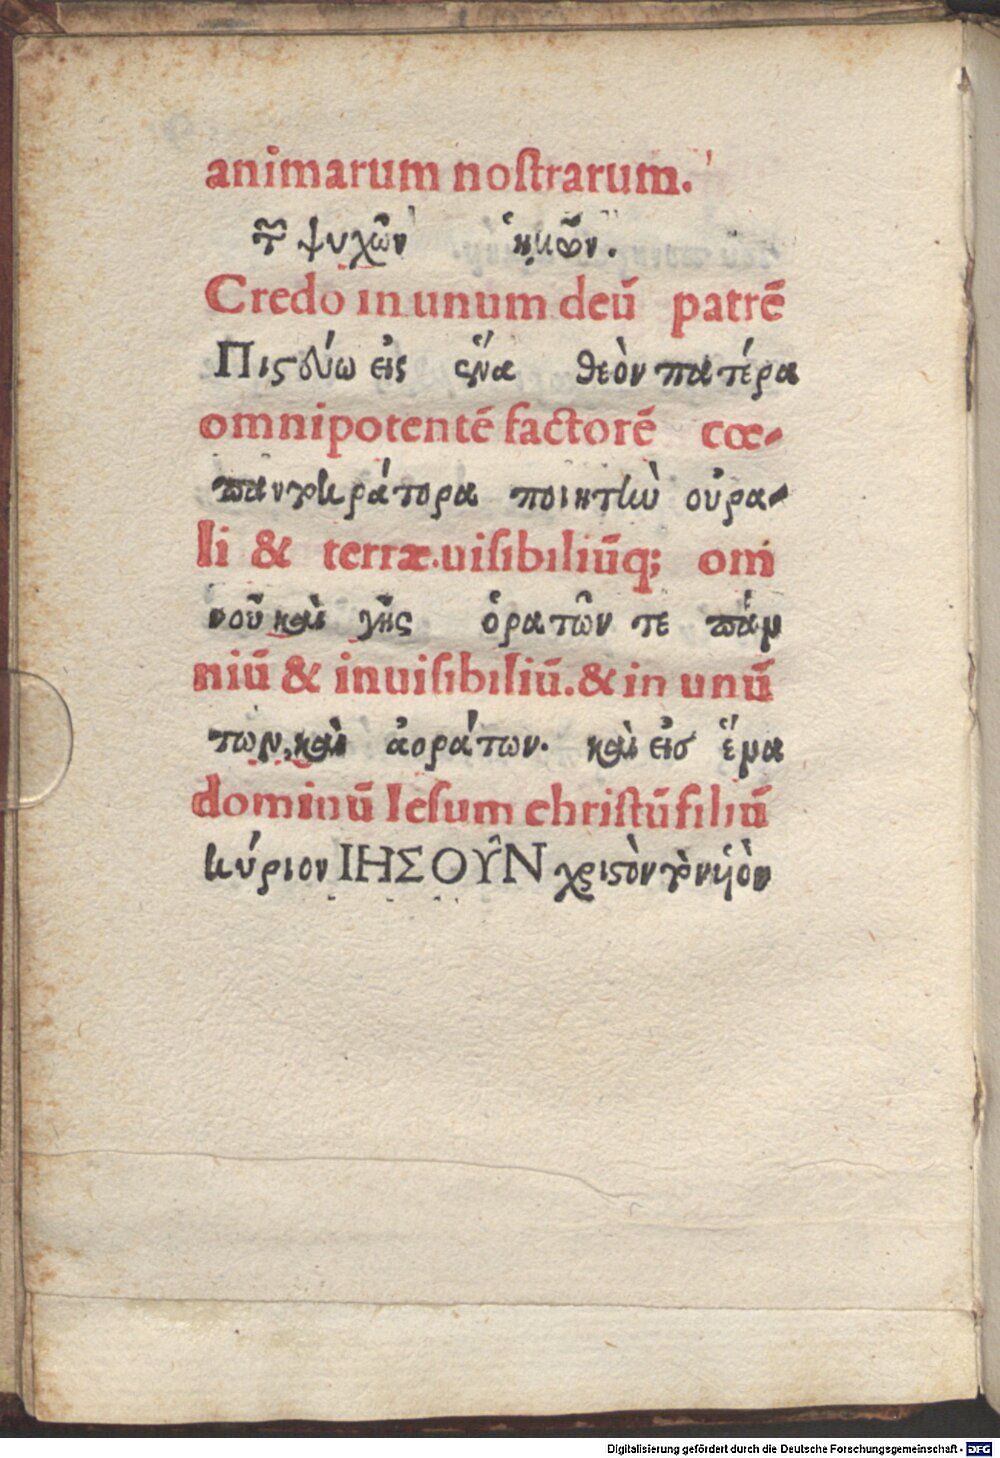 animarum noſtrarum.
τ῀ ψυχῶν ἡμῶν.
Credo in unum deū patrē
Πιςδύω εἰς ἕνα θεὸν πατέρα
omnipotentē factorē cœ-
παντκράτορα ποιητὼ οὐρα-
li & terræ.uiſibiliūq; om
νοῦ καὶ γῆς ὁρατῶν τε πάμ
niū & inuiſibiliū.& in unū
των, καὶ ἀοράτων. καὶ εἰσ ἕμα
dominū Ieſum chriſtū filiū
κύριον ΙΗΣΟΥ͂Ν χριςὸν τὸν ὑιὸν
Digitalisierung gefördert durch die Deutsche Forschungsgemeinschaft - DFG